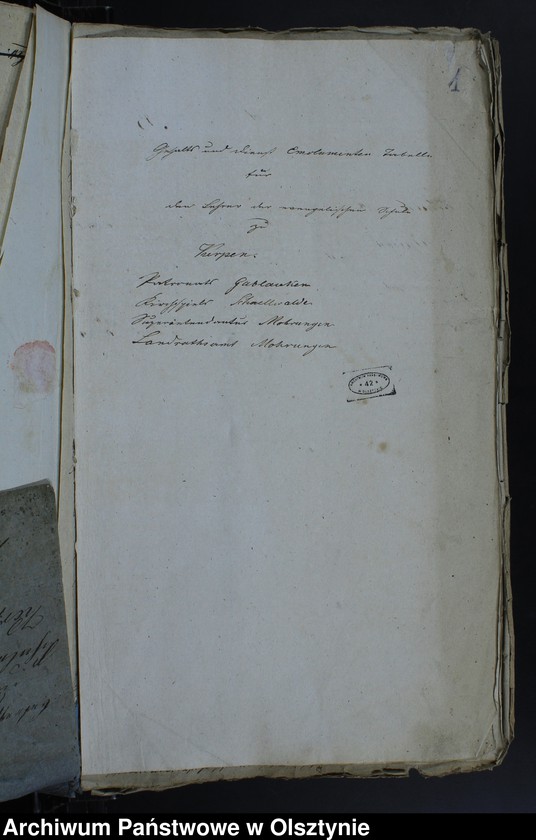 1
Gehalts und Dienst Emolumenten Tabelle
für
den Lehrer der evangelischen Schule
zu
Kerpen.
Patronats Gablauken
Kirchspiels Schnellwalde
Superintendantur Mohrungen
Landrathsamt Mohrungen
* 42 *
Archiwum Państwowe w Olsztynie